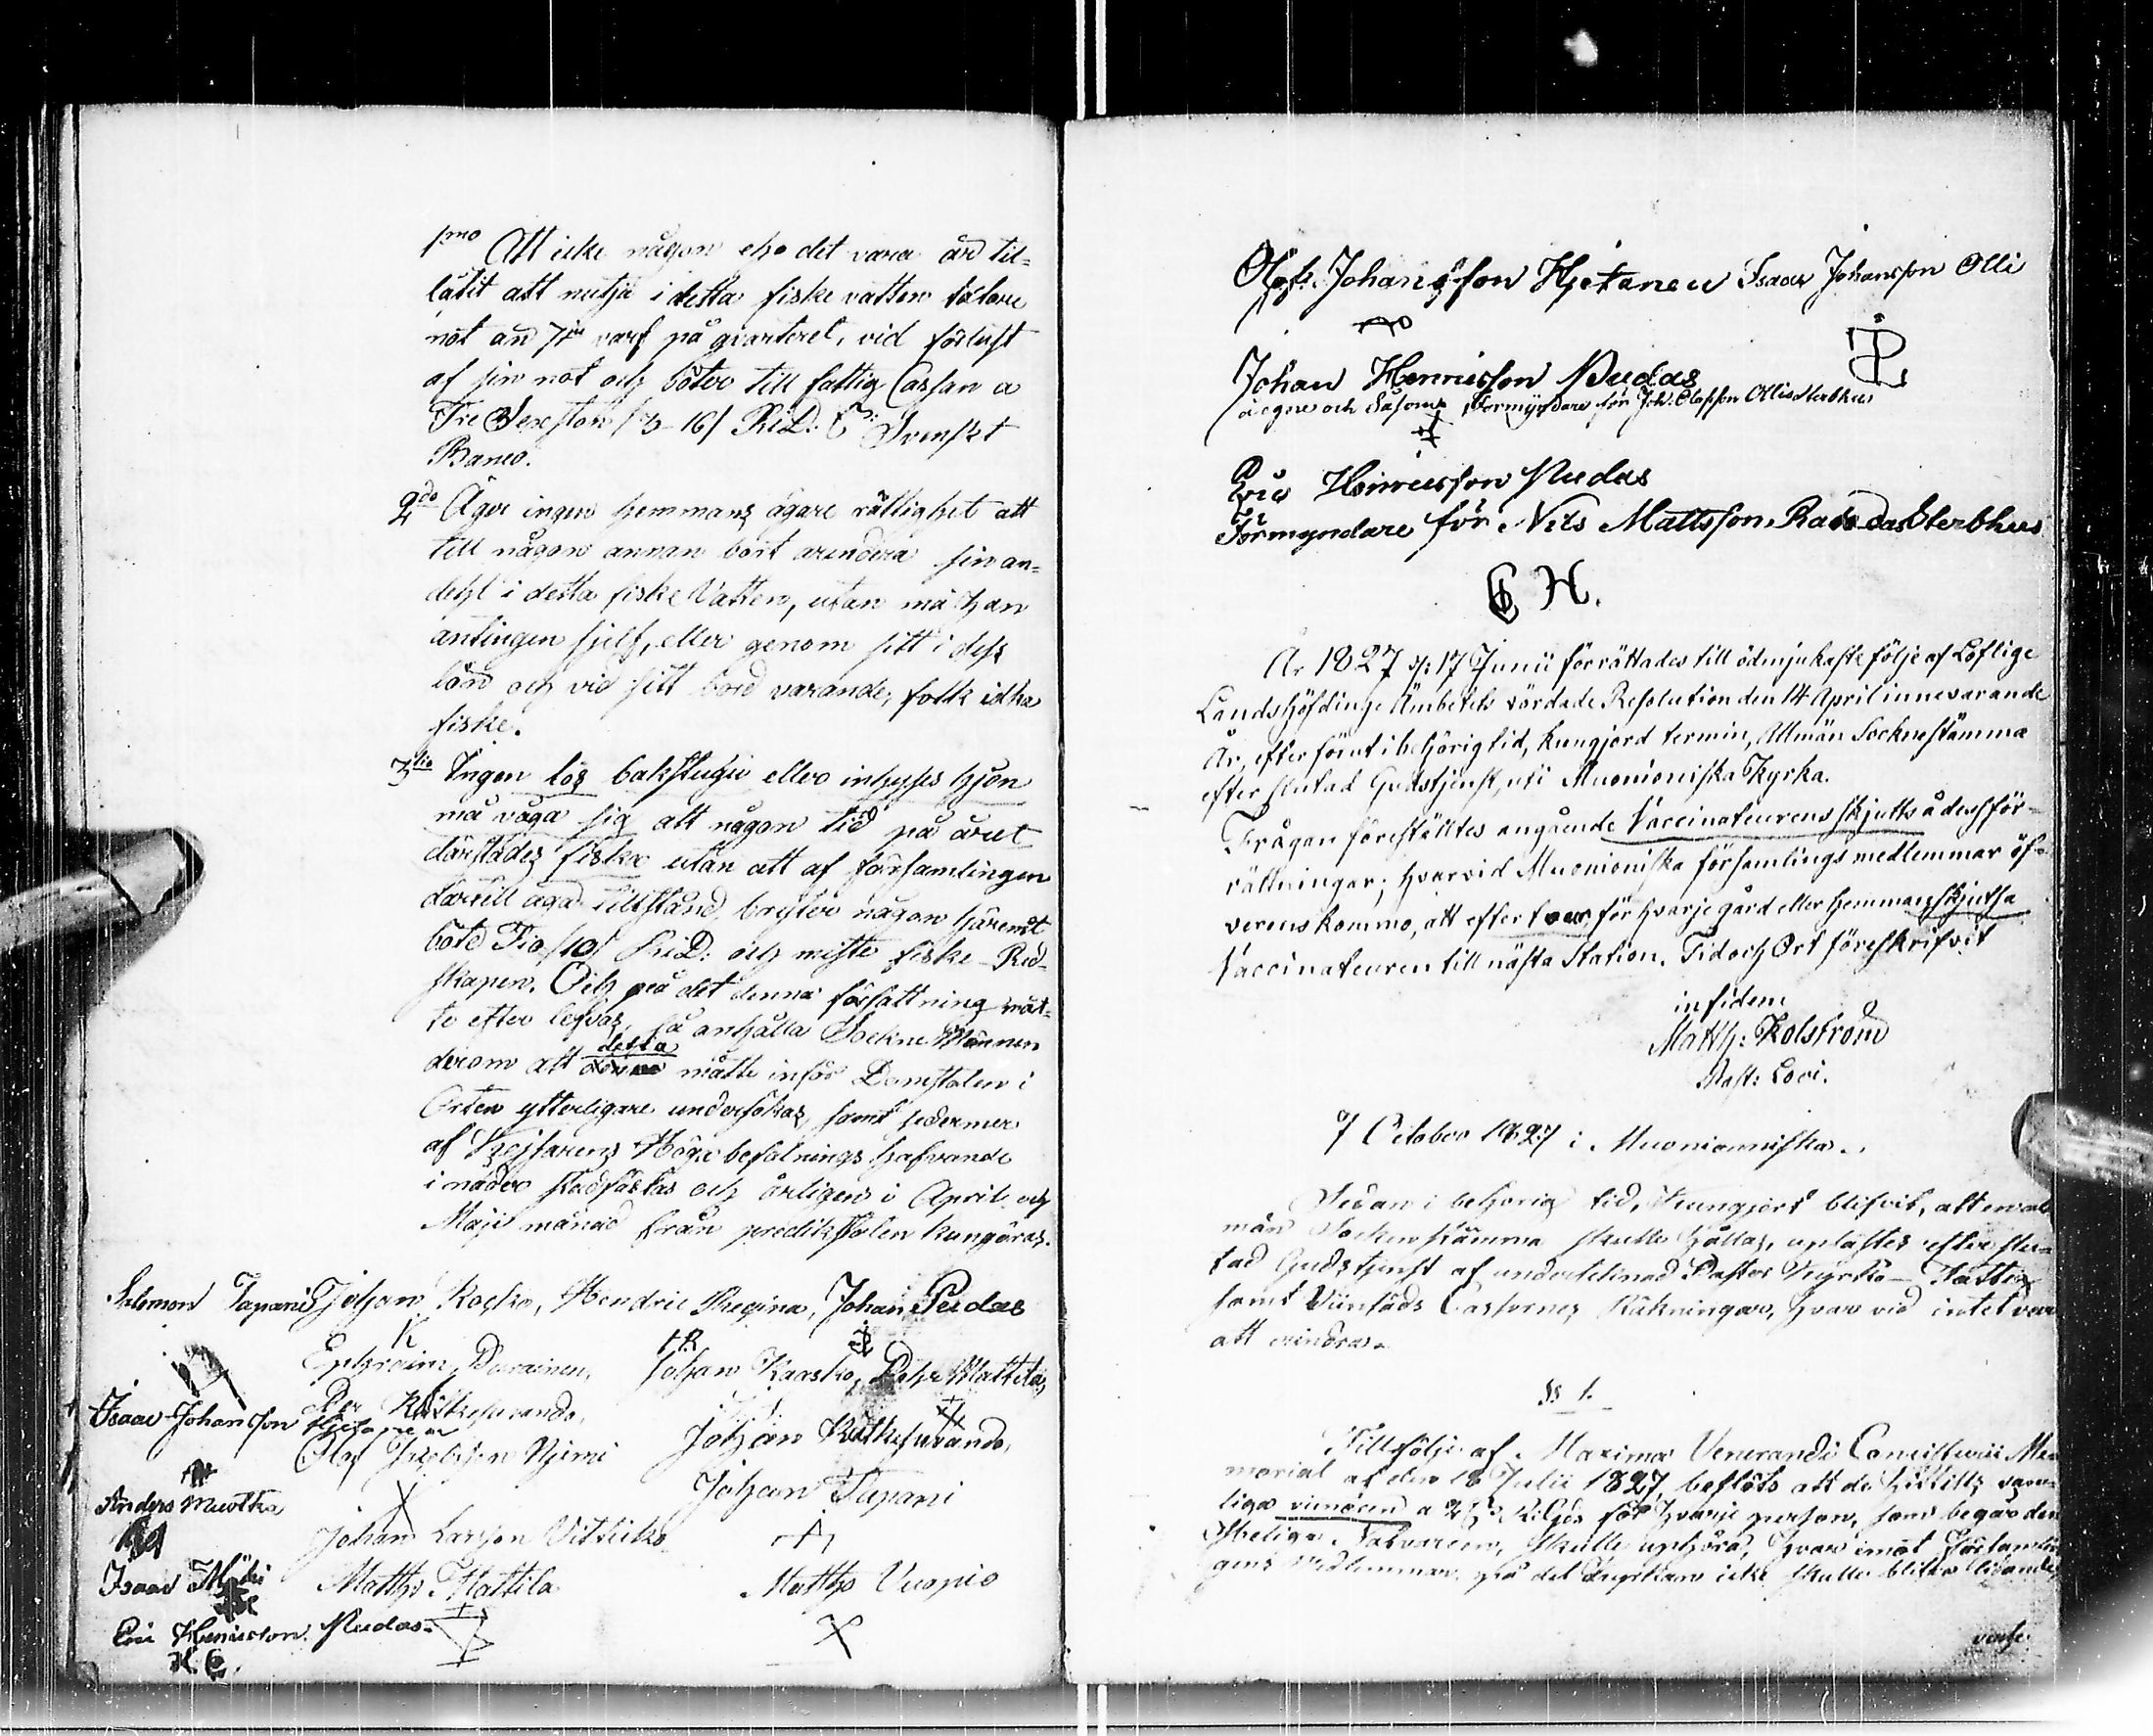 1mo Att icke någon eho det vara än til-
låtit att nutja i detta fiske vatten tätare
nöt än 7 varf på qvarteret, vid förlust
af sin nöt och böter till fattig Cassan a
Tre Sexton /3-16/ RiD: Svenskt
Banco.
2do Äger ingen hemmans ägare rättighet att
till någon annan bort arendera sin an-
dehl i detta fiske Vatten, utan må han
antingen sjelf, eller genom sitt i dess
lön och vid sitt bord varande, folk idka
fiske.
3tio Ingen lös bakstugu eller inhyses hjon
må våga sig att någon tid på året
därstädes fiska utan att af församlingen
dertill äga tillstånd, bryter någon häremot
böte Tio /10/ RiD: och miste fiske-Red-
skapen. Och på det denna författning måt-
te efter lefvas, så anhålla Sockne Männen
derom att detta måtte inför Domstolen i
Orten ytterligare undersökas, samt sedermer
af Kejsarens Höga befalnings hafvande
i nåder stadfästas och årligen i April och
Maji månad från predikstolen kungöras.
Salomon Tapani Johan Kosko, Hendric Regina, Johan Pudas
K HR
Ephraim Durainen, Johan Kaasko, Pehr Mattila,
Isaac Johansson Hjetanen Per Kätkesuando,
Olof Njemi Johan Kätkesuando,
Anders Muotka Johan Tapani
Johan Larsson Vittikko
Isaac Matths Mattila Matths Vuopio
Eric Henricsson Pudas
H. E.
Olof Johansson Hjetanen Isaac Johansson Olli
Johan Henricsson Pudas
ägne och Såsom Formyndare för Joh: Olofsson Ollis sterbhus
Eric Henricsson Pudas
Förmyndare för Nils Mattsson Sterbhus
E H.
År 1827 d: 17 Junii förrättades till ödmjukaste följe af Loflige
Landshöfdinge Ämbetets vördade Resolution den 14 April innevarande
År, efter förut i behörig tid, kungjord termin, Allmän Sockne stämma
efter slutad Gudstjenst, uti Muonioniska Kyrka.
Frågan föreställtes angående Vaccinateurens skjutts å dess för-
rättningar; hvarvid Muonioniska församlings medlemmar öf-
verens kommo, att efter tour, för hvarje gård eller hemman skjutsa
Vaccinateuren till nästa Station. Tid och Ort föreskrifvit
in fidem
Matth: Kolström
Past: Loci.
7 October 1827 i Muonioniska.
Sedan i behörig tid, kungjort blifvit, att en all
män Socken stämma skulle hållas, uplästes efter slu-
tad Gudstjenst af undertecknad Pastor Kyrko- Fattig
samt Cassornes Räkningar, hvar vid intet var
att erindra.
§ 1.
Till följe af Maxime Venerandi Consistorii Me-
morial af den 18 Julii 1827, beslöts att de hittills van-
liga a RiGds för hvarje person, som begår den
Heliga Nattvarden, skulle uphöra, hvar emot Församlin
gens Medlemmar på det Kyrkan icke skulle blifva lidande